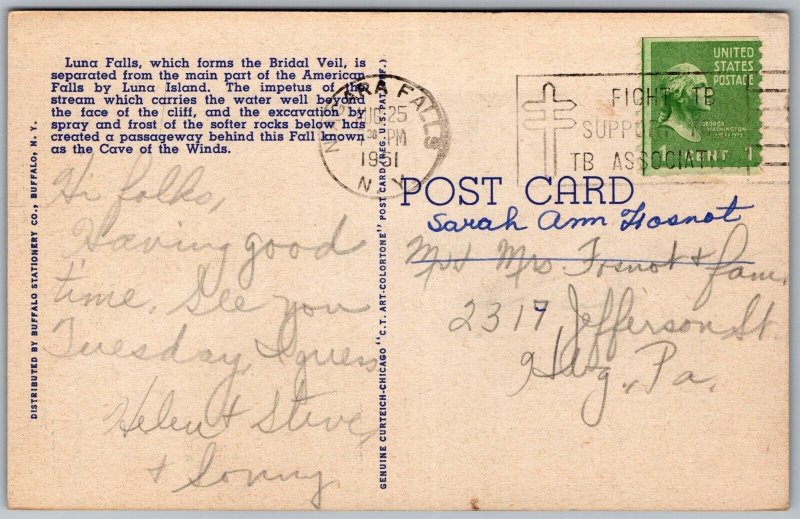 Luna Falls, which forms the Bridal Veil, is
separated from the main part of the American
Falls by Luna Island. The impetus of the
stream which carries the water well beyond
the face of the cliff, and the excavation by
spray and frost of the softer rocks below has
created a passageway behind this Fall known
as the Cave of the Winds.
Hi folks,
Having good
time. See you
Tuesday, I guess
Helen + Steve,
+ Sonny
DISTRIBUTED BY BUFFALO STATIONERY CO., BUFFALO, N. Y.
GENUINE CURTEICH-CHICAGO "C.T. ART-COLORTONE" POST CARD (REG. U.S. PAT. OFF.)
NIAGARA FALLS
25
PM
1951
N. Y.
FIGHT TB
SUPPORT
TB ASSOCIATI
UNITED
STATES
POSTAGE
GEORGE
WASHINGTON
1 CENT 1
POST CARD
Sarah Ann Fosnot
Mr + Mrs. Fosnot + fam.
2317 Jefferson St.
Hbg., Pa.